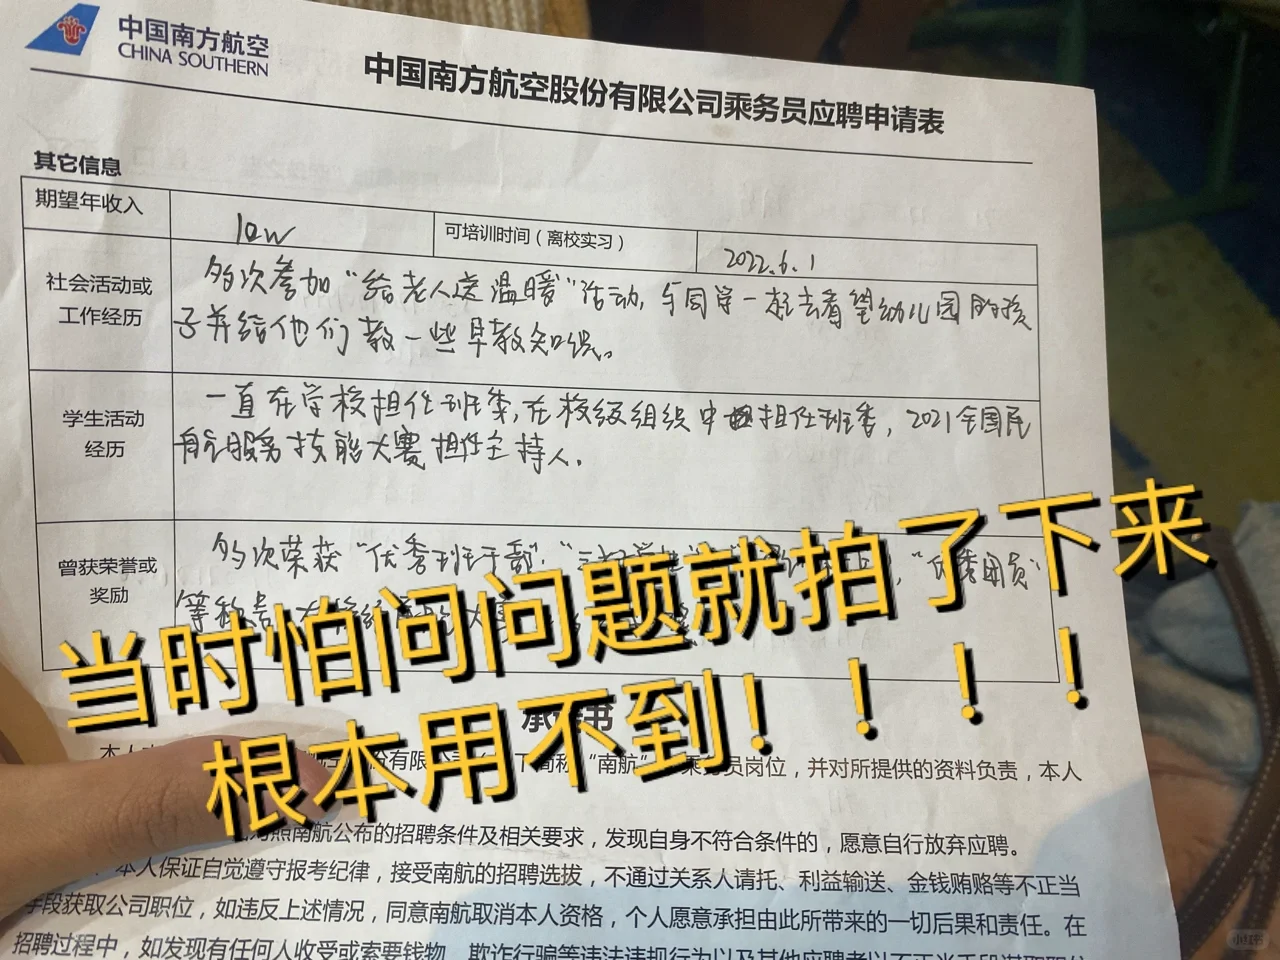 中国南方航空
CHINA SOUTHERN
中国南方航空股份有限公司乘务员应聘申请表
其它信息
期望年收入
10w
可培训时间（离校实习）
2022.6.1
社会活动或
工作经历
多次参加“给老人送温暖”活动，与同学一起去看望幼儿园的孩
子并给他们教一些早教知识。
学生活动
经历
一直在学校担任班委，在校级组织中担任班委，2021全国民
航服务技能大赛担任主持人.
曾获荣誉或
奖励
多次荣获“优秀班干部”“三好学生”“优秀团员”
等称号
当时怕问问题就拍了下来
根本用不到！！！！
承诺书
本人
股份有限公司
下简称“南航”
乘务员岗位，并对所提供的资料负责，本人
照南航公布的招聘条件及相关要求，发现自身不符合条件的，愿意自行放弃应聘。
本人保证自觉遵守报考纪律，接受南航的招聘选拔，不通过关系人请托、利益输送、金钱贿赂等不正当
手段获取公司职位，如违反上述情况，同意南航取消本人资格，个人愿意承担由此所带来的一切后果和责任。在
招聘过程中，如发现有任何人收受或索要钱物、欺诈行骗等违法违规行为以及其他应聘者以不正当手段谋取职位
小红书